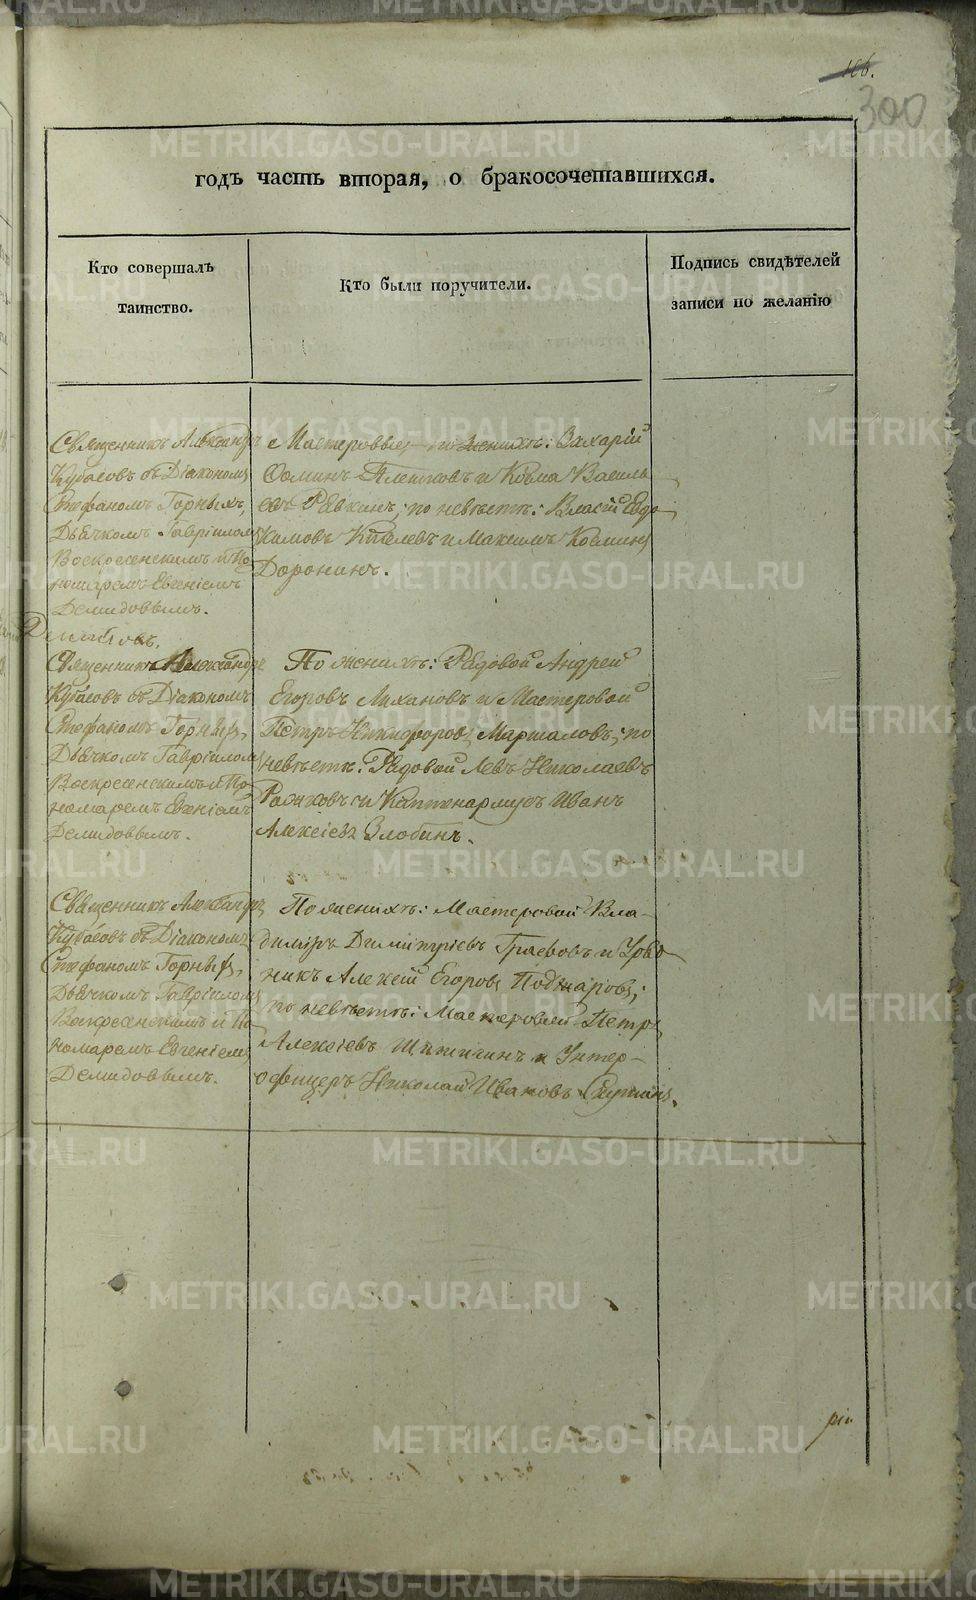 106.
300
годъ часть вторая, о бракосочетавшихся.
Кто совершалъ
таинство.
Кто были поручители.
Подпись свидѣтелей
записи по желанію
Священникъ Александръ
Кубасовъ съ Діакономъ
Стефаномъ Горныхъ,
Дьячкомъ Гавріиломъ
Воскресенскимъ и По
номаремъ Евгеніемъ
Демидовымъ.
Мастеровые, по женихѣ: Захарій
Ѳоминъ и Козма Василь
евъ Рѣвкинъ; по невѣстѣ: Власій Евдо
кимовъ и Максимъ Козминъ
Доронинъ.
Священникъ Александръ
Кубасовъ съ Діакономъ
Стефаномъ Горныхъ,
Дьячкомъ Гавріиломъ
Воскресенскимъ и По
номаремъ Евгеніемъ
Демидовымъ.
По женихѣ: Рядовой Андрей
Егоровъ Михановъ и Мастеровой
Петръ Никифоровъ Маршаловъ; по
невѣстѣ: Рядовой Левъ Николаевъ
и Каптенармусъ Иванъ
Алексіевъ Злобинъ.
Священникъ Александръ
Кубасовъ съ Діакономъ
Стефаномъ Горныхъ,
Дьячкомъ Гавріиломъ
Воскресенскимъ и По
номаремъ Евгеніемъ
Демидовымъ.
По женихѣ: Мастеровой Вла-
димиръ Димитріевъ и Урядо
никъ Алексій Егоровъ Поджаровъ;
по невѣстѣ: Мастеровой Петръ
Алексіевъ и Унтер-
офицеръ Николай Ивановъ
METRIKI.GASO-URAL.RU